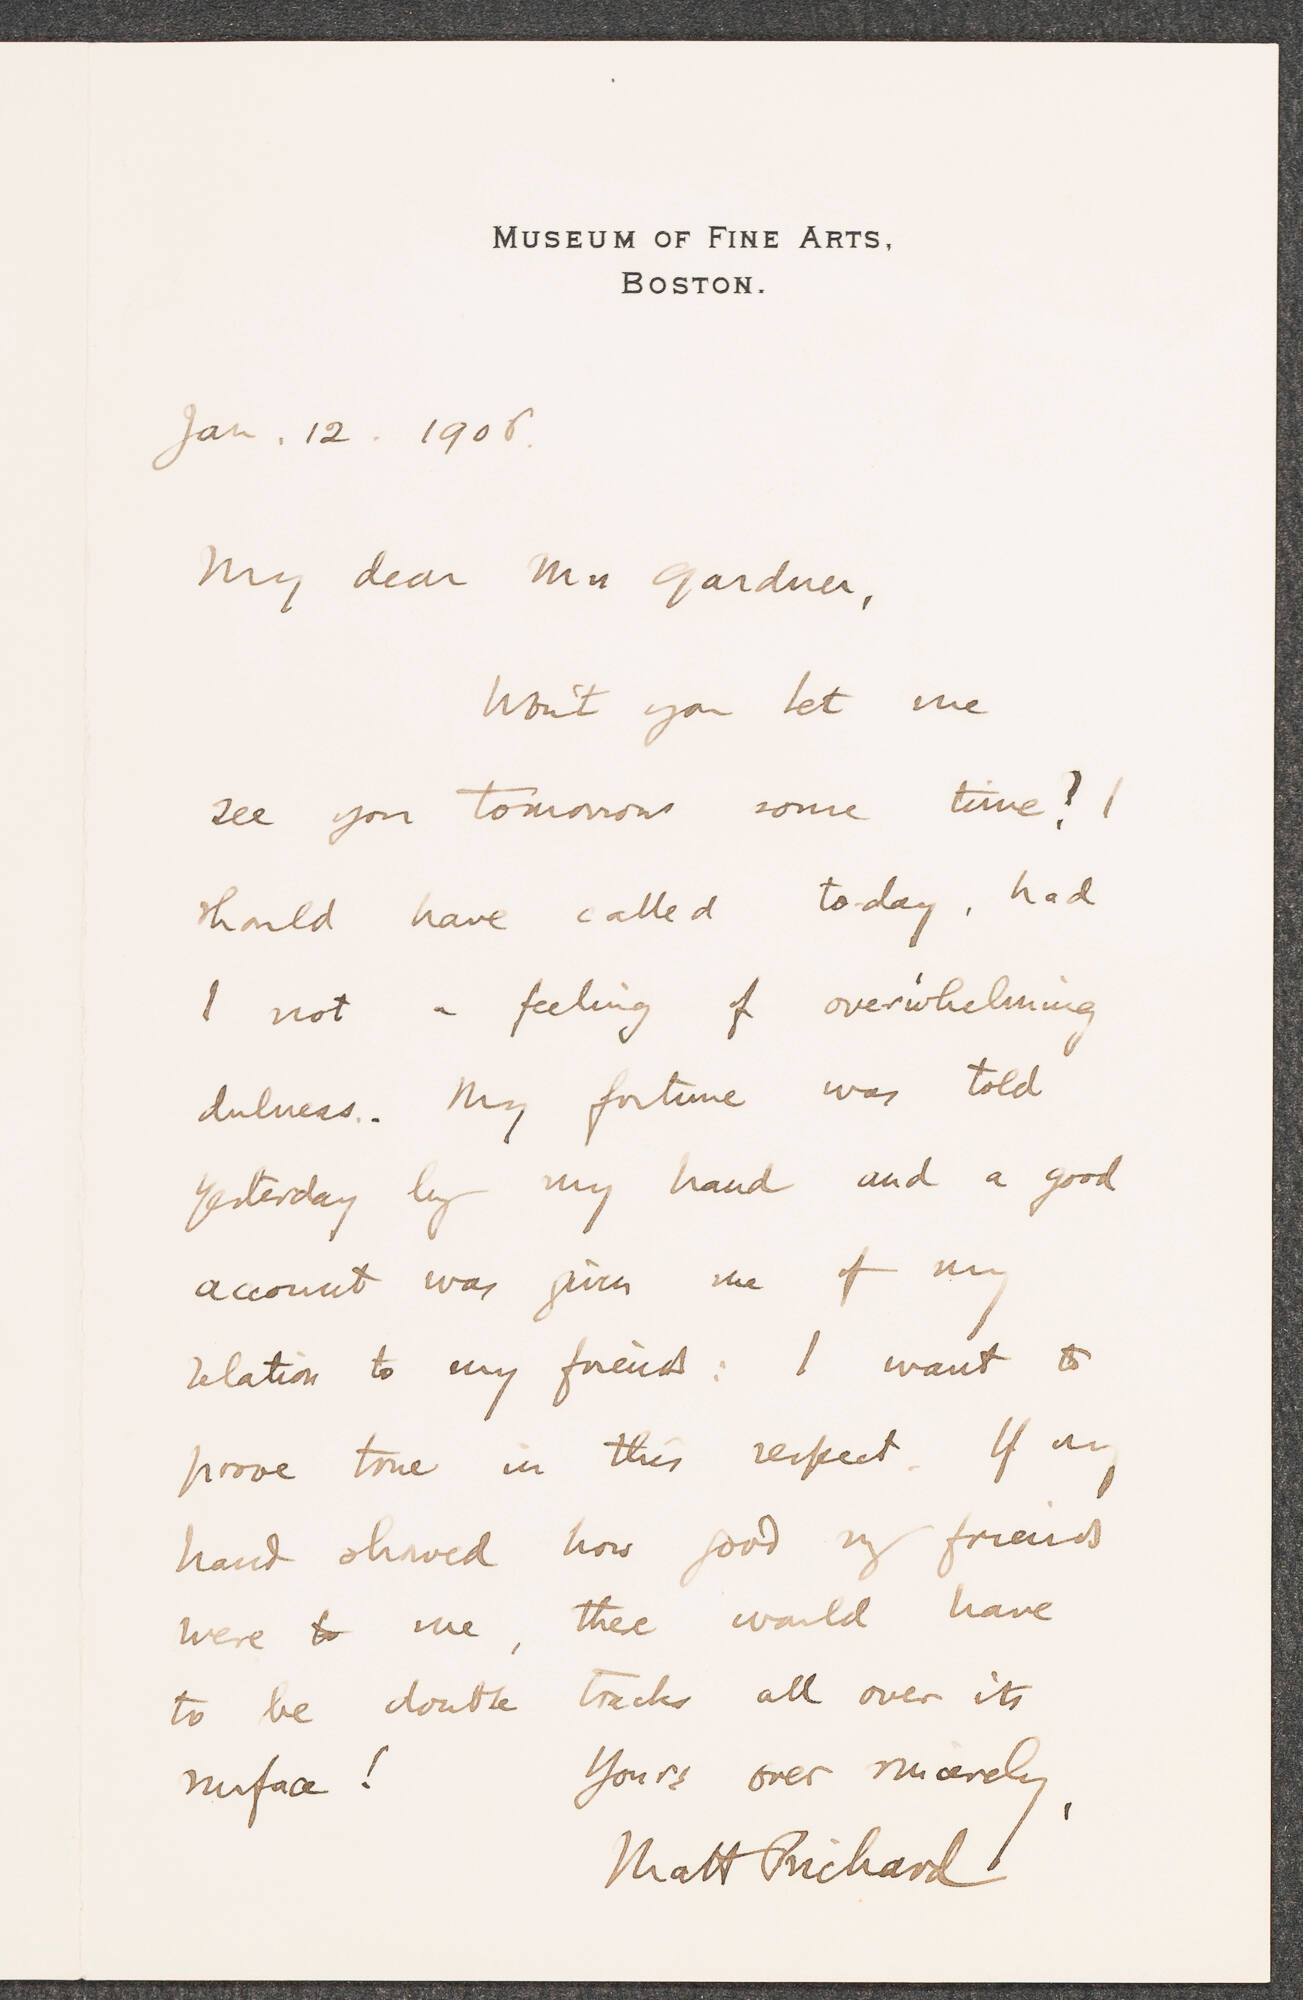 MUSEUM OF FINE ARTS,
BOSTON.
Jan. 12. 1906.
My dear Mrs Gardner,
Won't you let me
see you tomorrow some time? I
should have called to-day, had
I not a feeling of overwhelming
dulness. My fortune was told
yesterday by my hand and a good
account was given me of my
relation to my friends: I want to
prove true in this respect. If my
hand showed how good my friends
were to me, there would have
to be double tracks all over its
surface! Yours ever sincerely,
Matt Prichard